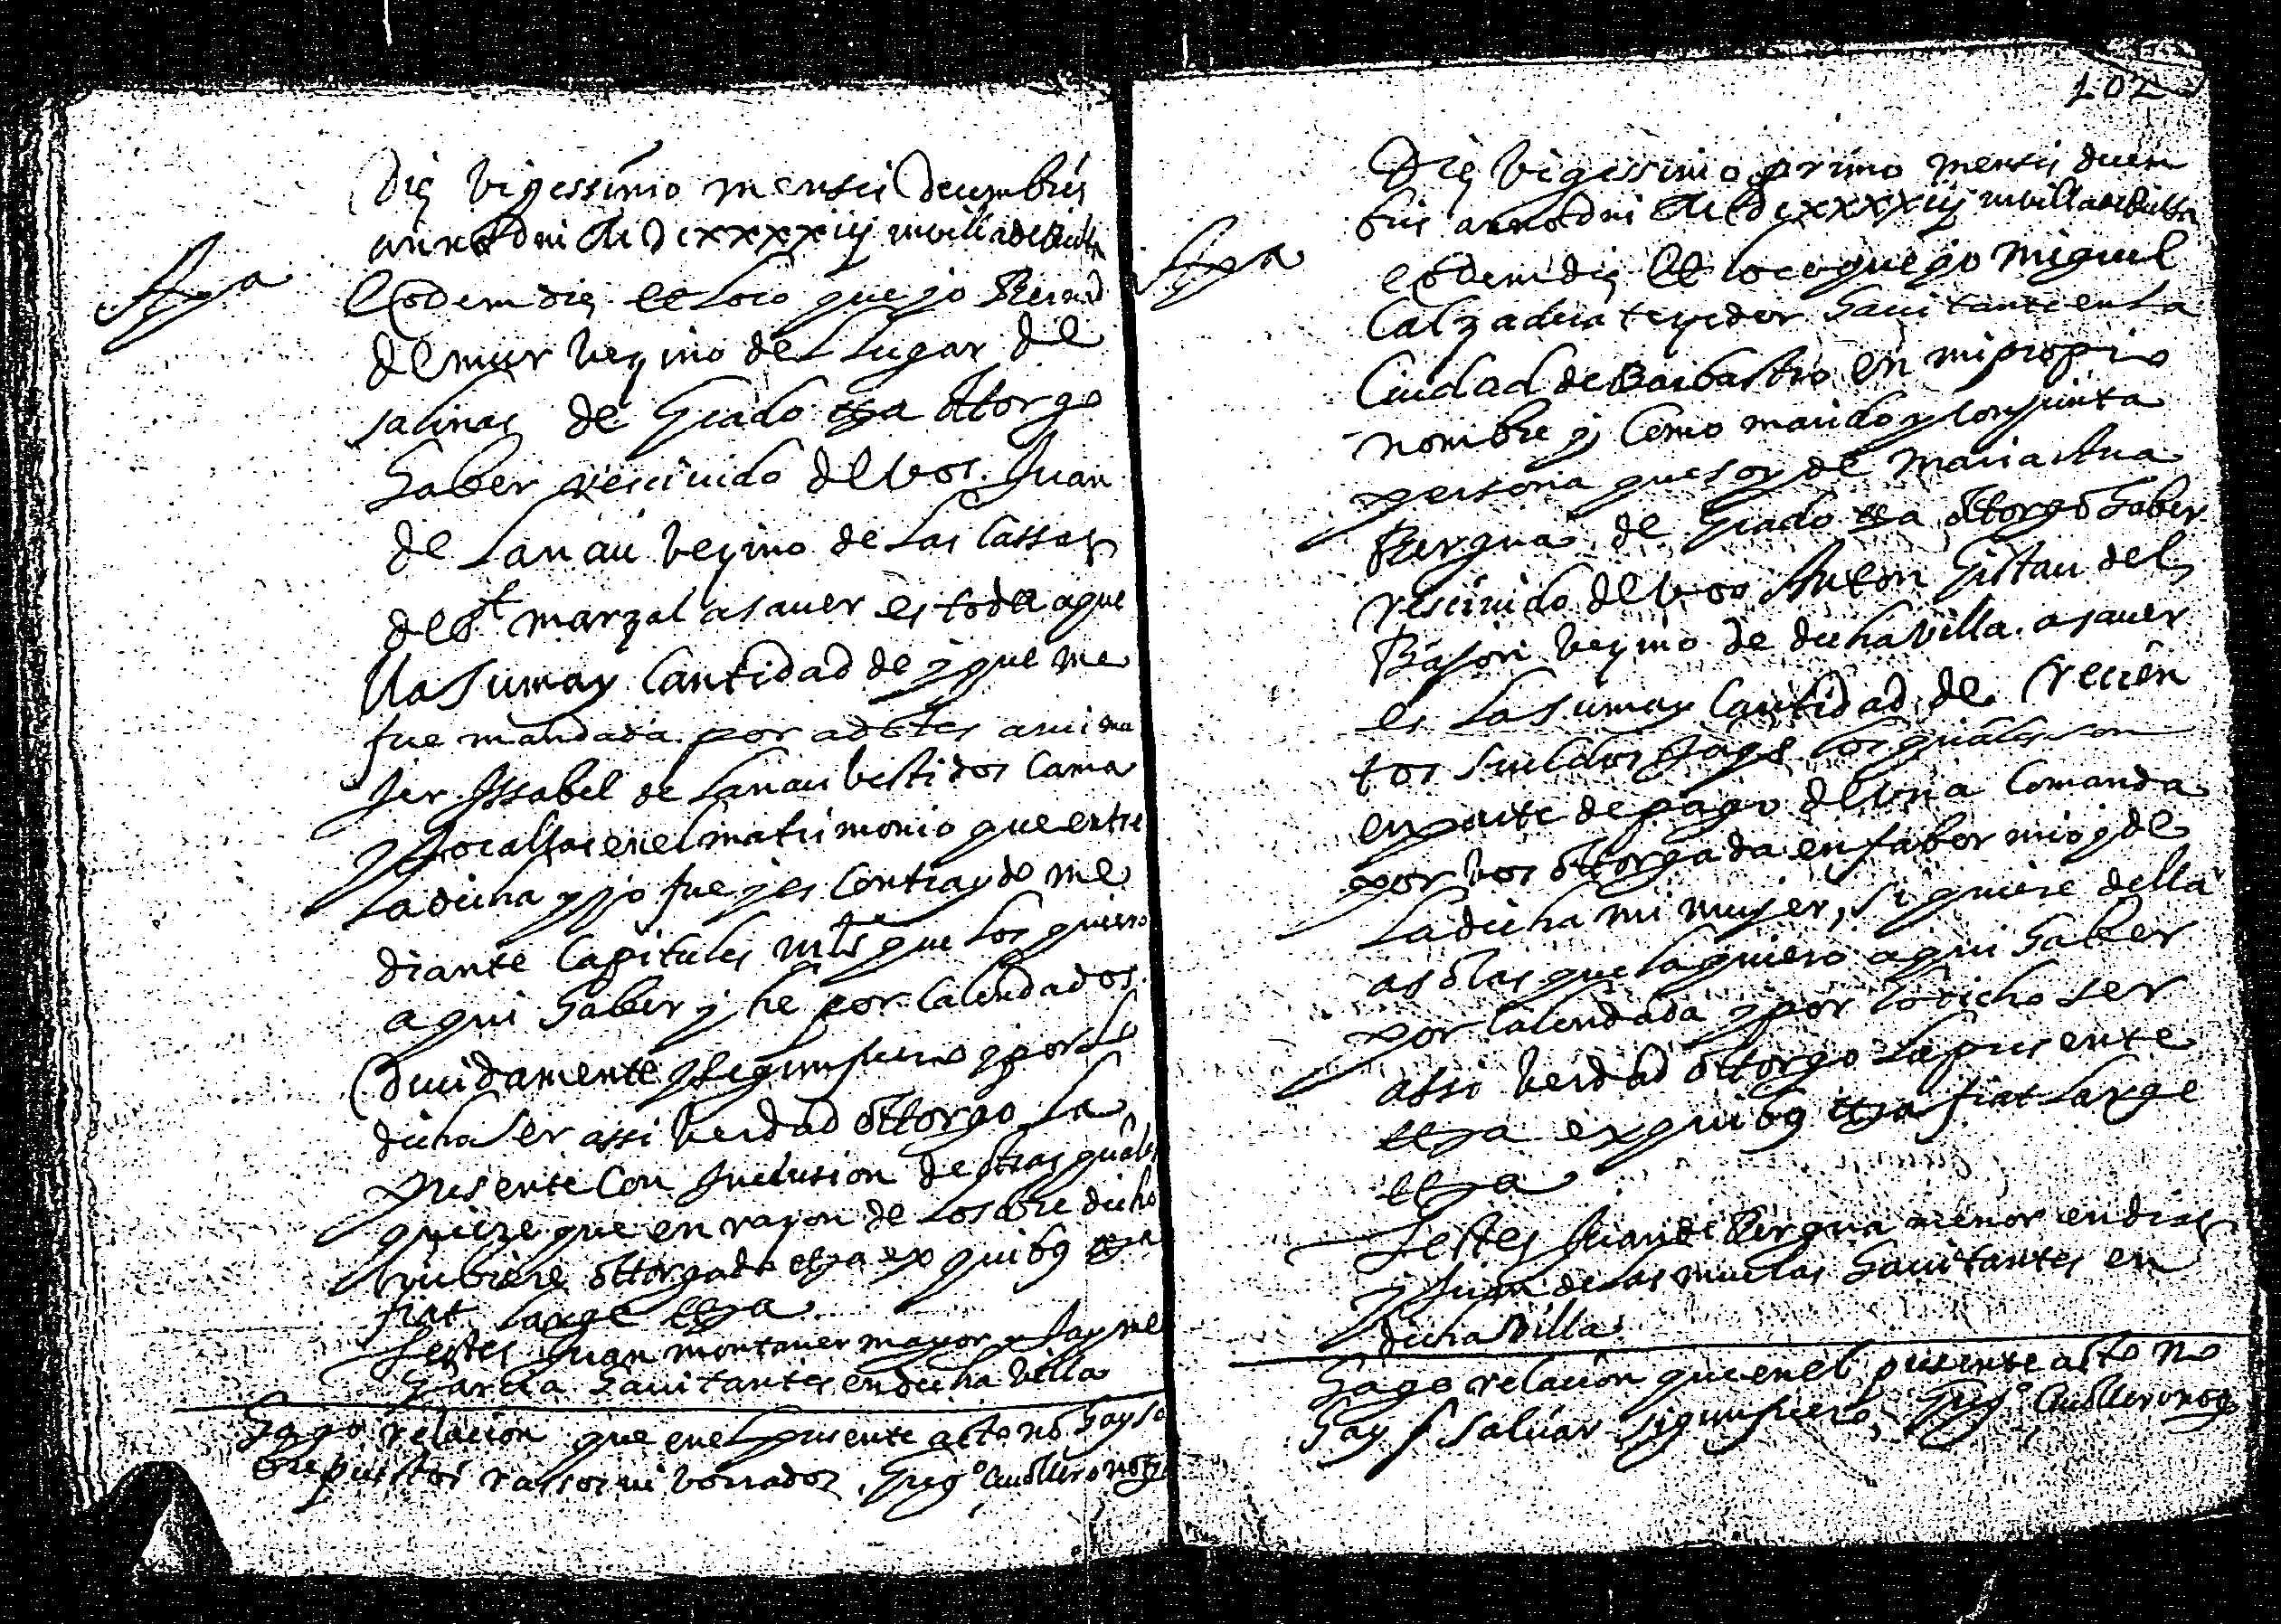 Die vigessimo mensis Decembris
anno Dni MDCxxxxiij in villa de Bielsa
Apa
Eodem die et loco que yo Bernad
de mur vezino del lugar de
salinas de Grado etza ottorgo
haber rescivido de vos Juan
de Lanau vezino de las cassas
de St marzal asaver es toda aque
lla suma y cantidad de que me
fue mandada por adotes a mi mu
jer Issabel de Lanau bestidos cama
y Jocallas en el matrimonio que entre
la dicha y yo fue y es contraydo me
diante capitules mles que los quiero
aqui haber y he por calendados
devidamente y segun fuero y por lo
dicho ser assi berdad ottorgo la
presente con Inclusion de otras quales
quiere que en razon de lo sobre dicho
hubiere ottorgado etza ex quibus etza
fiat large etza
Testes Juan montaner mayor y Jayme
Garcia havitantes en dicha villa
Hago relacion que en el presente acto no hay so
brepuestos rassos ni borrados. Gregº Cavallero notº
102
Die vigessimo primo mensis decem
bris anno Dni MDCxxxxiij in villa de Bielsa
Apa
Eodem die et loco que yo Miguel
Calzadera texedor havitante en la
Ciudad de Barbastro en mi propio
nombre y como marido y conjunta
persona que soy de Maria Ana
Bergua de Grado etza ottorgo haber
rescivido de vos Anton Gistau del
Bason vezino de dicha villa. asaver
es la suma y cantidad de trecien
tos sueldos jaqs los quales son
en parte de pago de una comanda
por vos ottorgada en fabor mio y de
la dicha mi mujer, si quiere della
asolas que la quiero aqui haber
por calendada y por lo dicho ser
assi berdad ottorgo la presente
etza ex quibus etza fiat large
etza
Testes Juan de Bergua menor en dias
y Juan de las muelas havitantes en
dicha villa
Hago relacion que en el presente acto no
hay q salvar segun fuero, Gregº Cavallero notº